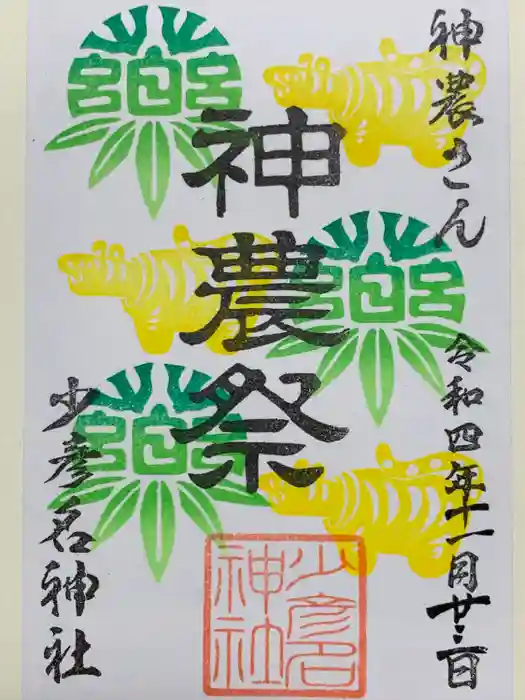 神農さん
令和四年十一月廿三日
神農祭
少彦名神社
少彦名
神社